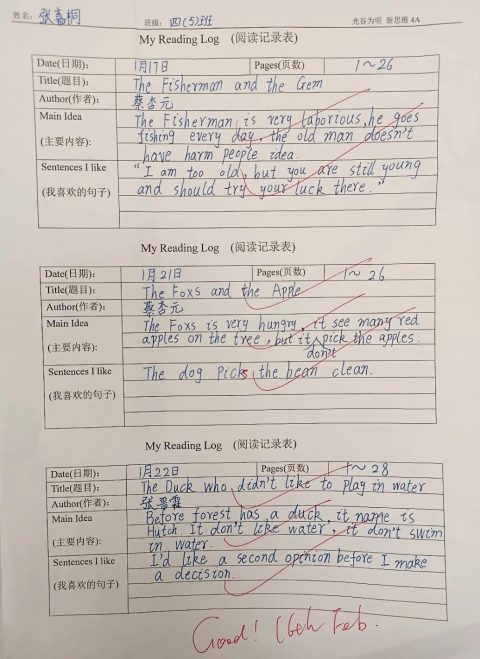 姓名: 张嘉桐 班级: 四(5)班 光谷为明 新思维 4A
My Reading Log (阅读记录表)
Date(日期): 1月17日 Pages(页数) 1~26
Title(题目): The Fisherman and the Gem
Author(作者): 蔡杏元
Main Idea The Fisherman is very laborious, he goes
fishing every day, the old man doesn't
(主要内容):
have harm people idea.
Sentences I like "I am too old, but you are still young
(我喜欢的句子) and should try your luck there."
My Reading Log (阅读记录表)
Date(日期): 1月21日 Pages(页数) 1~26
Title(题目): The Foxs and the Apple
Author(作者): 蔡杏元
Main Idea The Foxs is very hungry, it see many red
(主要内容): apples on the tree, but it pick the apples
don't
Sentences I like The dog Picks the bean clean.
(我喜欢的句子)
My Reading Log (阅读记录表)
Date(日期): 1月22日 Pages(页数) 1~28
Title(题目): The Duck who didn't like to play in water
Author(作者): 张晋霖
Main Idea Before forest has a duck, it name is
Hutch. It don't like water, it don't swim
(主要内容):
in water.
Sentences I like I'd like a second opinion before I make
(我喜欢的句子) a decision.
Good! 16th Feb.